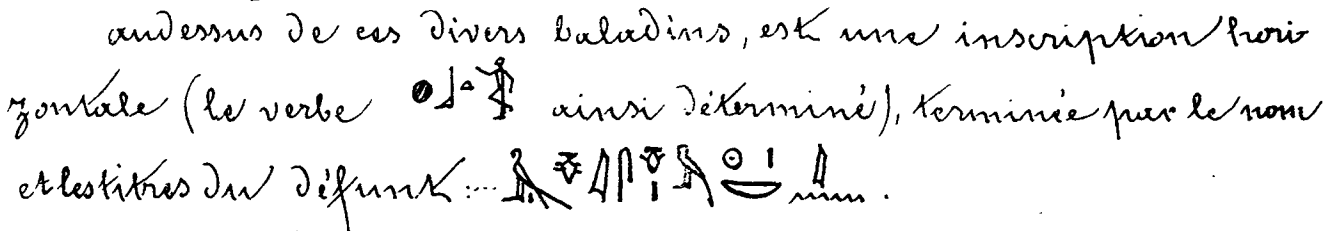 audessus de ces divers baladins, est une inscription hori
zontale (le verbe 𓐍𓃀𓏏 ainsi déterminé), terminée par le nom
et les titres du défunt :....